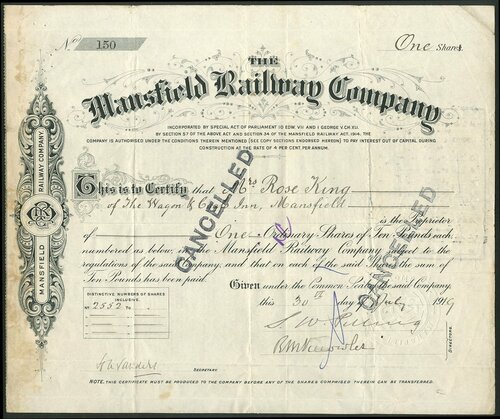 No 150
One Shares
THE
Mansfield Railway Company
INCORPORATED BY SPECIAL ACT OF PARLIAMENT 10 EDW. VII AND 1 GEORGE V. CH. XLI.
BY SECTION 57 OF THE ABOVE ACT AND SECTION 34 OF THE MANSFIELD RAILWAY ACT, 1914, THE
COMPANY IS AUTHORISED UNDER THE CONDITIONS THEREIN MENTIONED (SEE COPY SECTIONS ENDORSED HEREON) TO PAY INTEREST OUT OF CAPITAL DURING
CONSTRUCTION AT THE RATE OF 4 PER CENT. PER ANNUM.
This is to Certify that Mrs Rose King
of The Wagon & Inn, Mansfield
is the Proprietor
of One Ordinary Shares of Ten Pounds each,
numbered as below, in the Mansfield Railway Company subject to the
regulations of the said Company, and that on each of the said Shares the sum of
Ten Pounds has been paid.
Given under the Common Seal of the said Company,
this 30th day of July 1919
DISTINCTIVE NUMBERS OF SHARES
INCLUSIVE.
No 2552 TO
S. W. Pilling
DIRECTORS.
SECRETARY.
NOTE, THIS CERTIFICATE MUST BE PRODUCED TO THE COMPANY BEFORE ANY OF THE SHARES COMPRISED THEREIN CAN BE TRANSFERRED.
CANCELLED
CANCELLED
MANSFIELD RAILWAY COMPANY